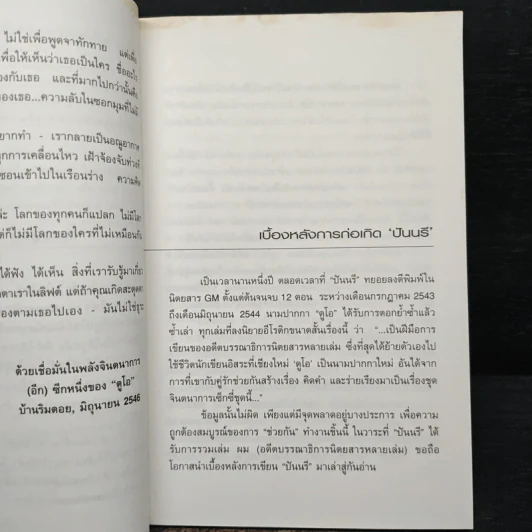 ไม่ใช่เพื่อพูดจาทักทาย แต่เพื่อ
เพื่อให้เห็นว่าเธอเป็นใคร ชื่ออะไร
องกับเธอ และที่มากไปกว่านั้นคือ
องเธอ...ความลับในซอกมุมที่ไม่มี
ยากทำ - เรากลายเป็นอณูอากาศ
ทุกการเคลื่อนไหว เฝ้าจ้องจับห่วงที่
ซอนเข้าไปในเรือนร่าง ความคิด
ล่ะ โลกของทุกคนก็แปลก ไม่มีใคร
ต่ก็ไม่มีโลกของใครที่ไม่เหมือนกัน
ได้ฟัง ได้เห็น สิ่งที่เรารับรู้มาเกี่ยว
ตาเราในลิฟต์ แต่ถ้าคุณเกิดสะดุดตา
องตามเธอไปเอง - มันไม่ใช่ธุระ
ด้วยเชื่อมั่นในพลังจินตนาการ
(อีก) ซีกหนึ่งของ "ดูโอ"
บ้านริมดอย, มิถุนายน 2546
เบื้องหลังการก่อเกิด 'ปันนรี'
เป็นเวลานานหนึ่งปี ตลอดเวลาที่ "ปันนรี" ทยอยลงตีพิมพ์ใน
นิตยสาร GM ตั้งแต่ต้นจนจบ 12 ตอน ระหว่างเดือนกรกฎาคม 2543
ถึงเดือนมิถุนายน 2544 นามปากกา "ดูโอ" ได้รับการตอกย้ำซ้ำแล้ว
ซ้ำเล่า ทุกเล่มที่ลงนิยายอีโรติกขนาดสั้นเรื่องนี้ ว่า "...เป็นฝีมือการ
เขียนของอดีตบรรณาธิการนิตยสารหลายเล่ม ซึ่งที่สุดได้ย้ายตัวเองไป
ใช้ชีวิตนักเขียนอิสระที่เชียงใหม่ 'ดูโอ' เป็นนามปากกาใหม่ อันได้จาก
การที่เขากับคู่รักช่วยกันสร้างเรื่อง คิดคำ และร่ายเรียงมาเป็นเรื่องชุด
จินตนาการเซ็กซี่ชุดนี้..."
ข้อมูลนั้นไม่ผิด เพียงแต่มีจุดพลาดอยู่บางประการ เพื่อความ
ถูกต้องสมบูรณ์ของการ "ช่วยกัน" ทำงานชิ้นนี้ ในวาระที่ "ปันนรี" ได้
รับการรวมเล่ม ผม (อดีตบรรณาธิการนิตยสารหลายเล่ม) ขอถือ
โอกาสนำเบื้องหลังการเขียน "ปันนรี" มาเล่าสู่กันอ่าน